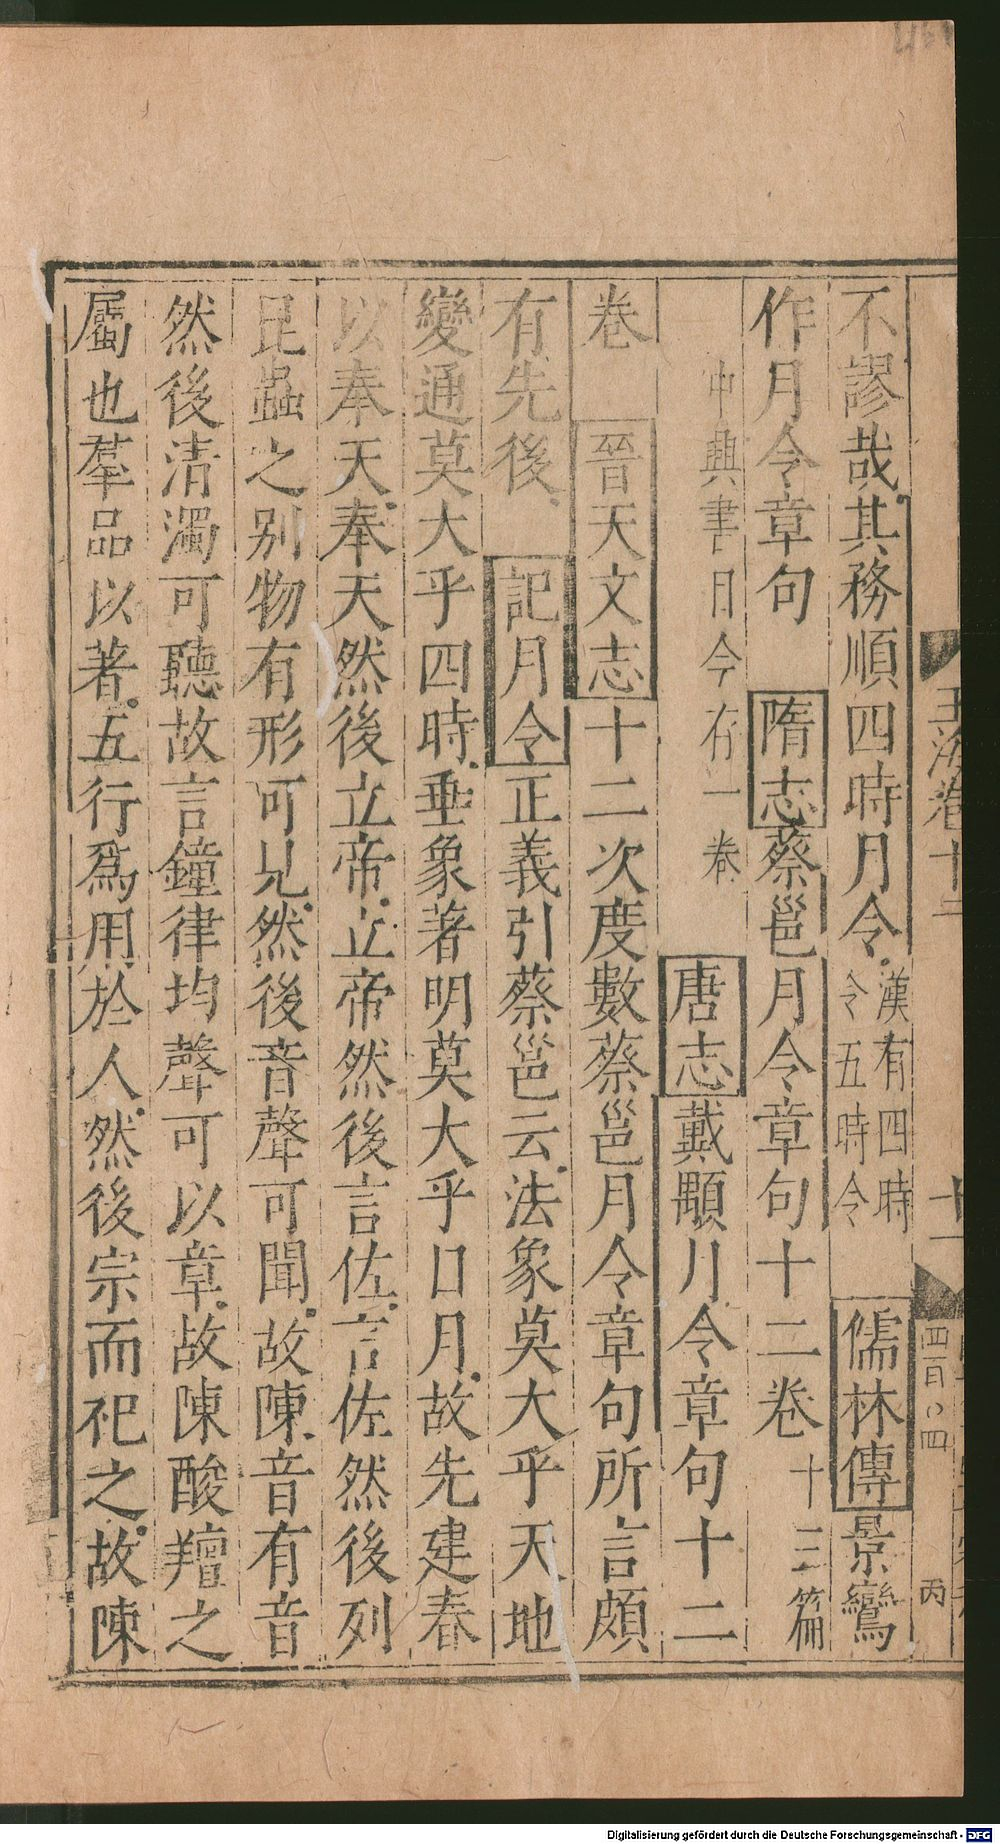 不謬哉其務順四時月令漢有四時令五時令儒林傳景鸞
作月令章句 隋志蔡邕月令章句十二卷十三篇
中興書目今存一卷 唐志戴顒月令章句十二
卷 晉天文志十二次度數蔡邕月令章句所言頗
有先後 記月令正義引蔡邕云法象莫大乎天地
變通莫大乎四時垂象著明莫大乎日月故先建春
以奉天奉天然後立帝立帝然後言佐言佐然後列
昆蟲之別物有形可見然後音聲可聞故陳音有音
然後清濁可聽故言鐘律均聲可以章故陳酸羶之
屬也羣品以著五行爲用於人然後宗而祀之故陳
玉海卷十二 十一 四百〇四 丙
Digitalisierung gefördert durch die Deutsche Forschungsgemeinschaft - DFG